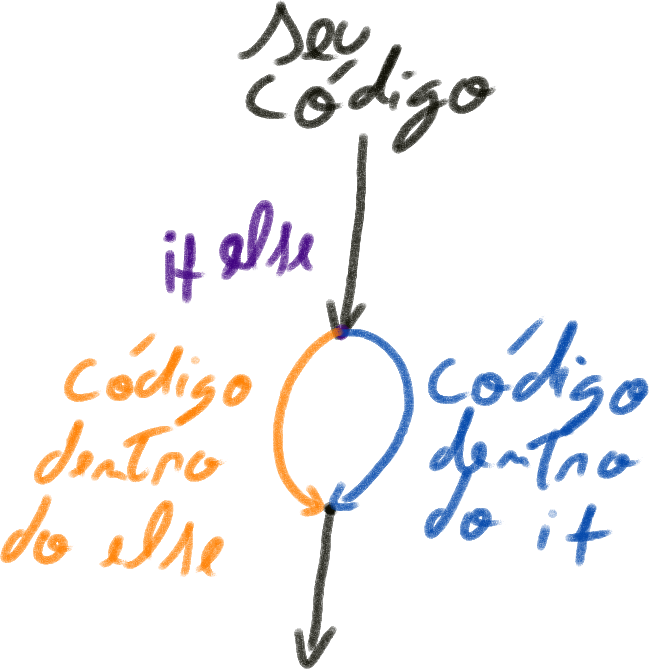 seu
código
if else
código
dentro
do else
código
dentro
do if